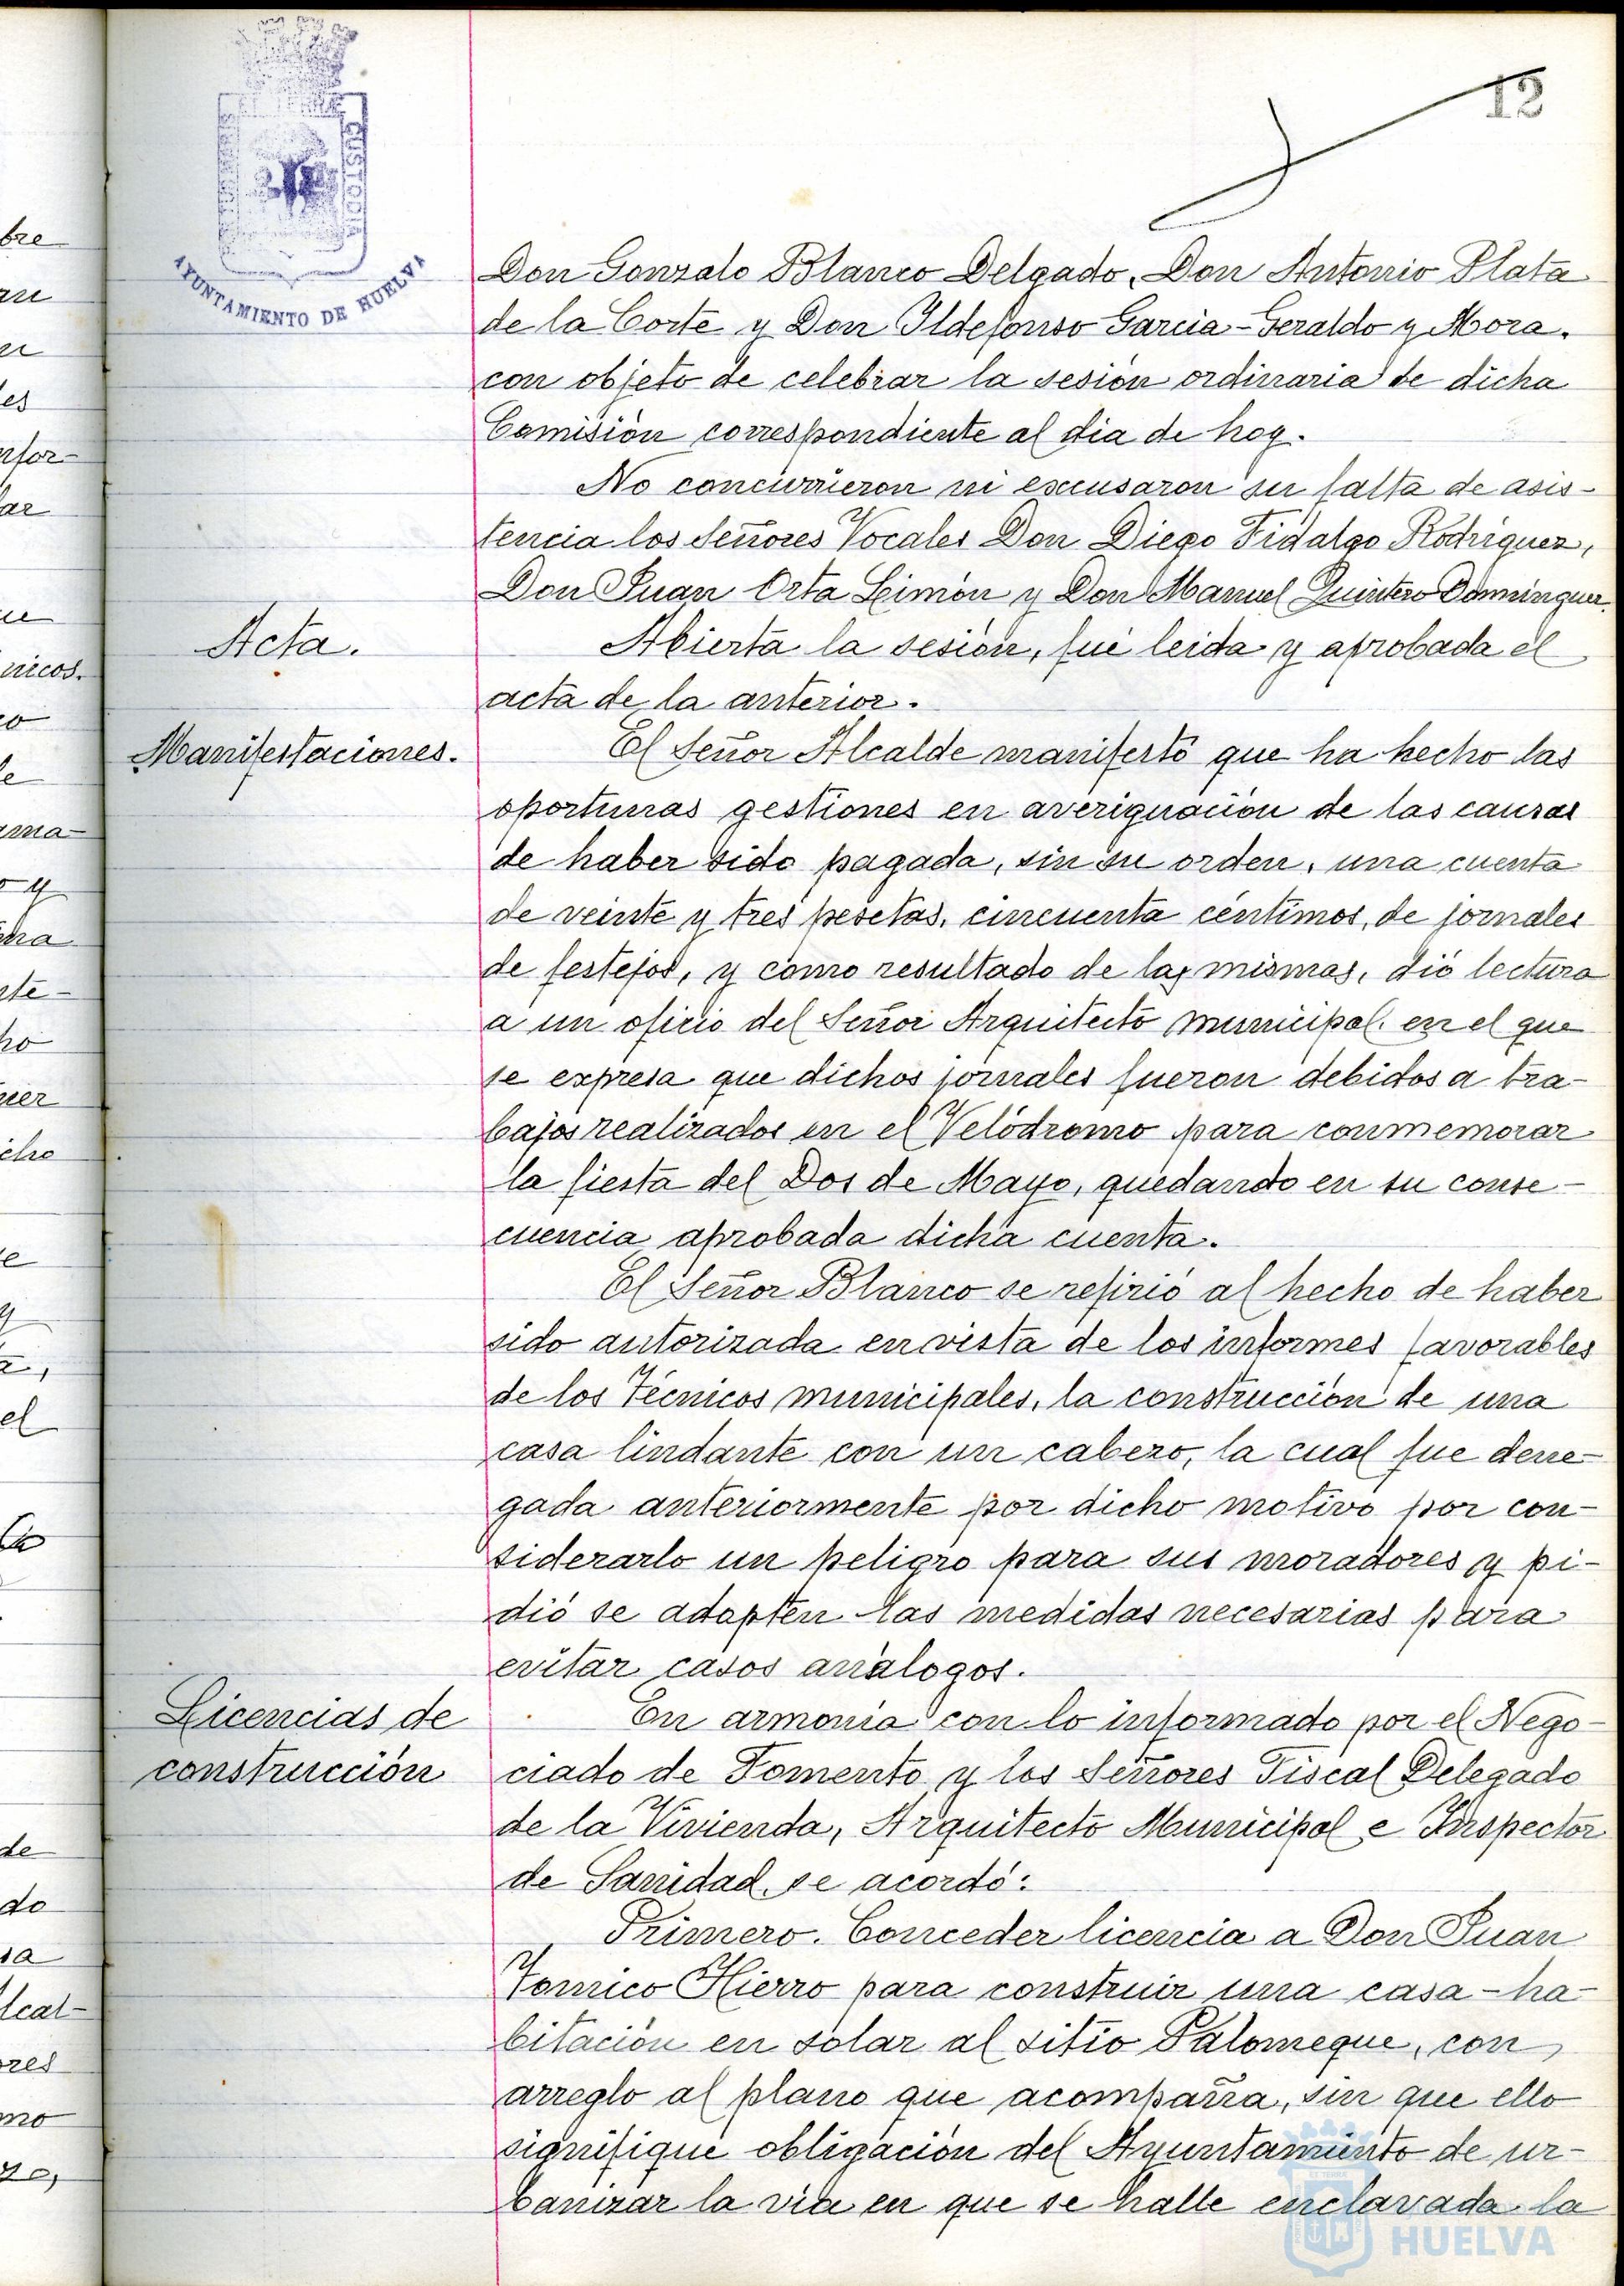 12
AYUNTAMIENTO DE HUELVA
CUSTODIA
Don Gonzalo Blanco Delgado, Don Antonio Plata
de la Corte y Don Ildefonso Garcia-Geraldo y Mora.
con objeto de celebrar la sesión ordinaria de dicha
Comisión correspondiente al dia de hoy.
No concurrieron ni excusaron su falta de asis-
tencia los Señores Vocales Don Diego Fidalgo Rodriguez,
Don Juan Orta Limón y Don Manuel Quintero Dominguez.
Acta.
Abierta la sesión, fué leida y aprobada el
acta de la anterior.
Manifestaciones.
El Señor Alcalde manifestó que ha hecho las
oportunas gestiones en averiguación de las causas
de haber sido pagada, sin su orden, una cuenta
de veinte y tres pesetas, cincuenta céntimos, de jornales
de festejos, y como resultado de las mismas, dió lectura
a un oficio del Señor Arquitecto municipal, en el que
se expresa que dichos jornales fueron debidos a tra-
bajos realizados en el Velódromo para conmemorar
la fiesta del Dos de Mayo, quedando en su conse-
cuencia aprobada dicha cuenta.
El Señor Blanco se refirió al hecho de haber
sido autorizada en vista de los informes favorables
de los Técnicos municipales, la construcción de una
casa lindante con un cabezo, la cual fue dene-
gada anteriormente por dicho motivo por con-
siderarlo un peligro para sus moradores y pi-
dió se adapten las medidas necesarias para
evitar casos análogos.
Licencias de
construcción
En armonia con lo informado por el Nego-
ciado de Fomento y los Señores Fiscal Delegado
de la Vivienda, Arquitecto Municipal e Inspector
de Sanidad, se acordó:
Primero. Conceder licencia a Don Juan
Tomico Hierro para construir una casa-ha-
bitación en solar al sitio Palomeque, con
arreglo al plano que acompaña, sin que ello
signifique obligación del Ayuntamiento de ur-
banizar la via en que se halle enclavada la
HUELVA